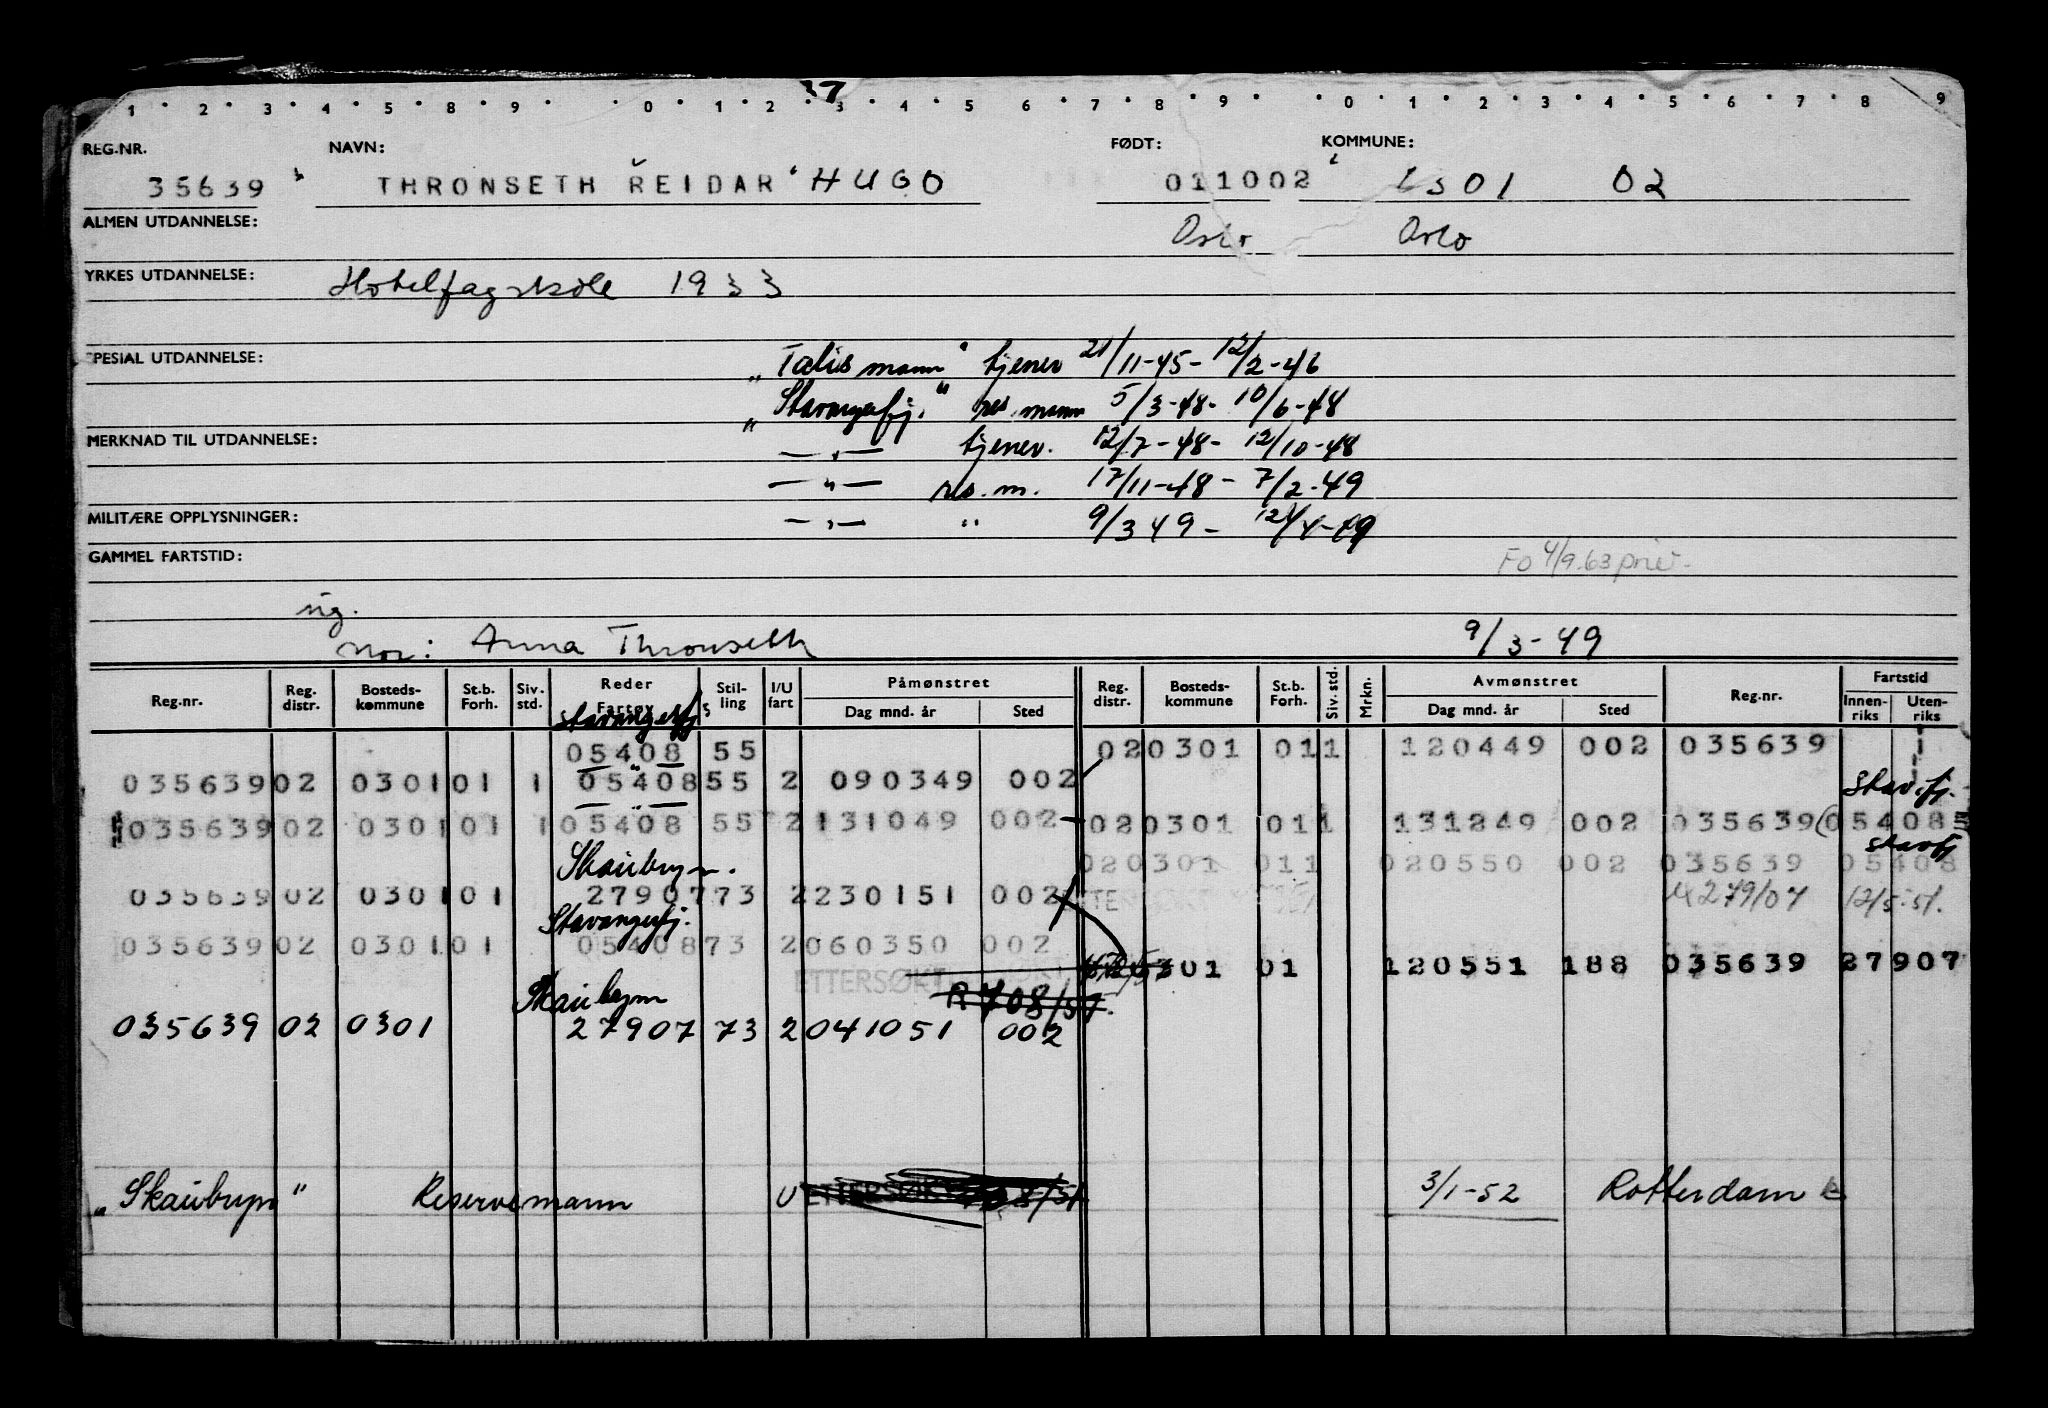 1 2 3 4 5 8 9 0 1 2 3 4 5 6 7 8 9 0 1 2 3 4 5 6 7 8 9
REG.NR. NAVN: FØDT: KOMMUNE:
35639 THRONSETH REIDAR HUGO 011002 1301 02
ALMEN UTDANNELSE: Oslo Oslo
YRKES UTDANNELSE: Hotelfagskole 1933
SPESIAL UTDANNELSE: "Talismann" tjener 21/11-45 - 12/2-46
"Stavangerfj." res.mann 5/3-48 - 10/6-48
MERKNAD TIL UTDANNELSE: —"— tjener. 12/7-48 - 12/10-48
—"— res.m. 17/11-48 - 7/2-49
MILITÆRE OPPLYSNINGER: —"— " 9/3 49 - 12/4-49
GAMMEL FARTSTID: FO 4/9.63 priv.
ug.
Mor: Anna Thronseth 9/3-49
Reg.nr. Reg. distr. Bosteds-kommune St.b. Forh. Siv. std. Reder Fartøy Stil-ling I/U fart Påmønstret Dag mnd. år Sted Reg. distr. Bosteds-kommune St.b. Forh. Siv. std. Mrkn. Avmønstret Dag mnd. år Sted Reg.nr. Fartstid Innen-riks Uten-riks
Stavangerfj
05408 55 020301 011 120449 002 035639
035639 02 0301 01 1 05408 55 2 090349 002 Stav.fj.
035639 02 0301 01 1 05408 55 2 131049 002 020301 011 131249 002 035639 05408
Skaubryn. 020301 011 020550 002 035639 05408 Stavfj
035639 02 0301 01 27907 73 2 230151 002 M 279/07 12/5-51.
Stavangerfj.
035639 02 0301 01 05408 73 2 060350 002
ETTERSØKT 0301 01 120551 188 035639 27907
Skaubryn R 708/51.
035639 02 0301 27907 73 2 041051 002
"Skaubryn" Reservemann U ETTERSØKT 3/1-52 Rotterdam